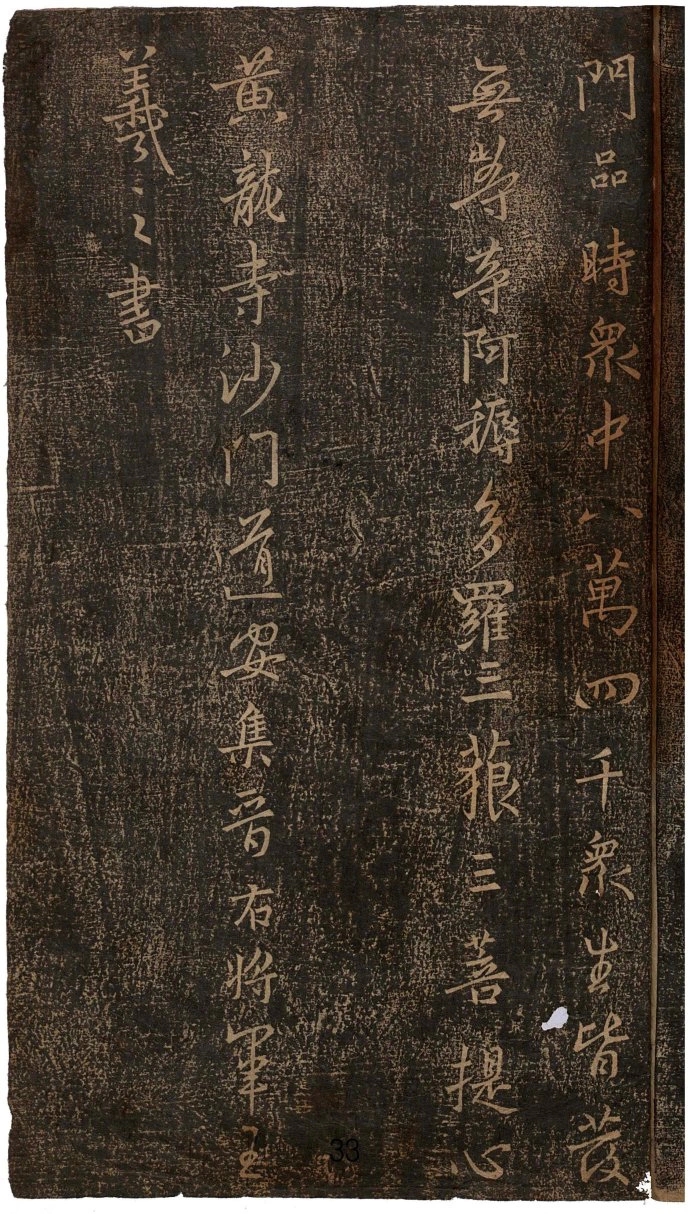 門品時眾中八萬四千眾生皆發
無等等阿耨多羅三藐三菩提心
黃龍寺沙门道安集晋右將軍王
羲之書
33